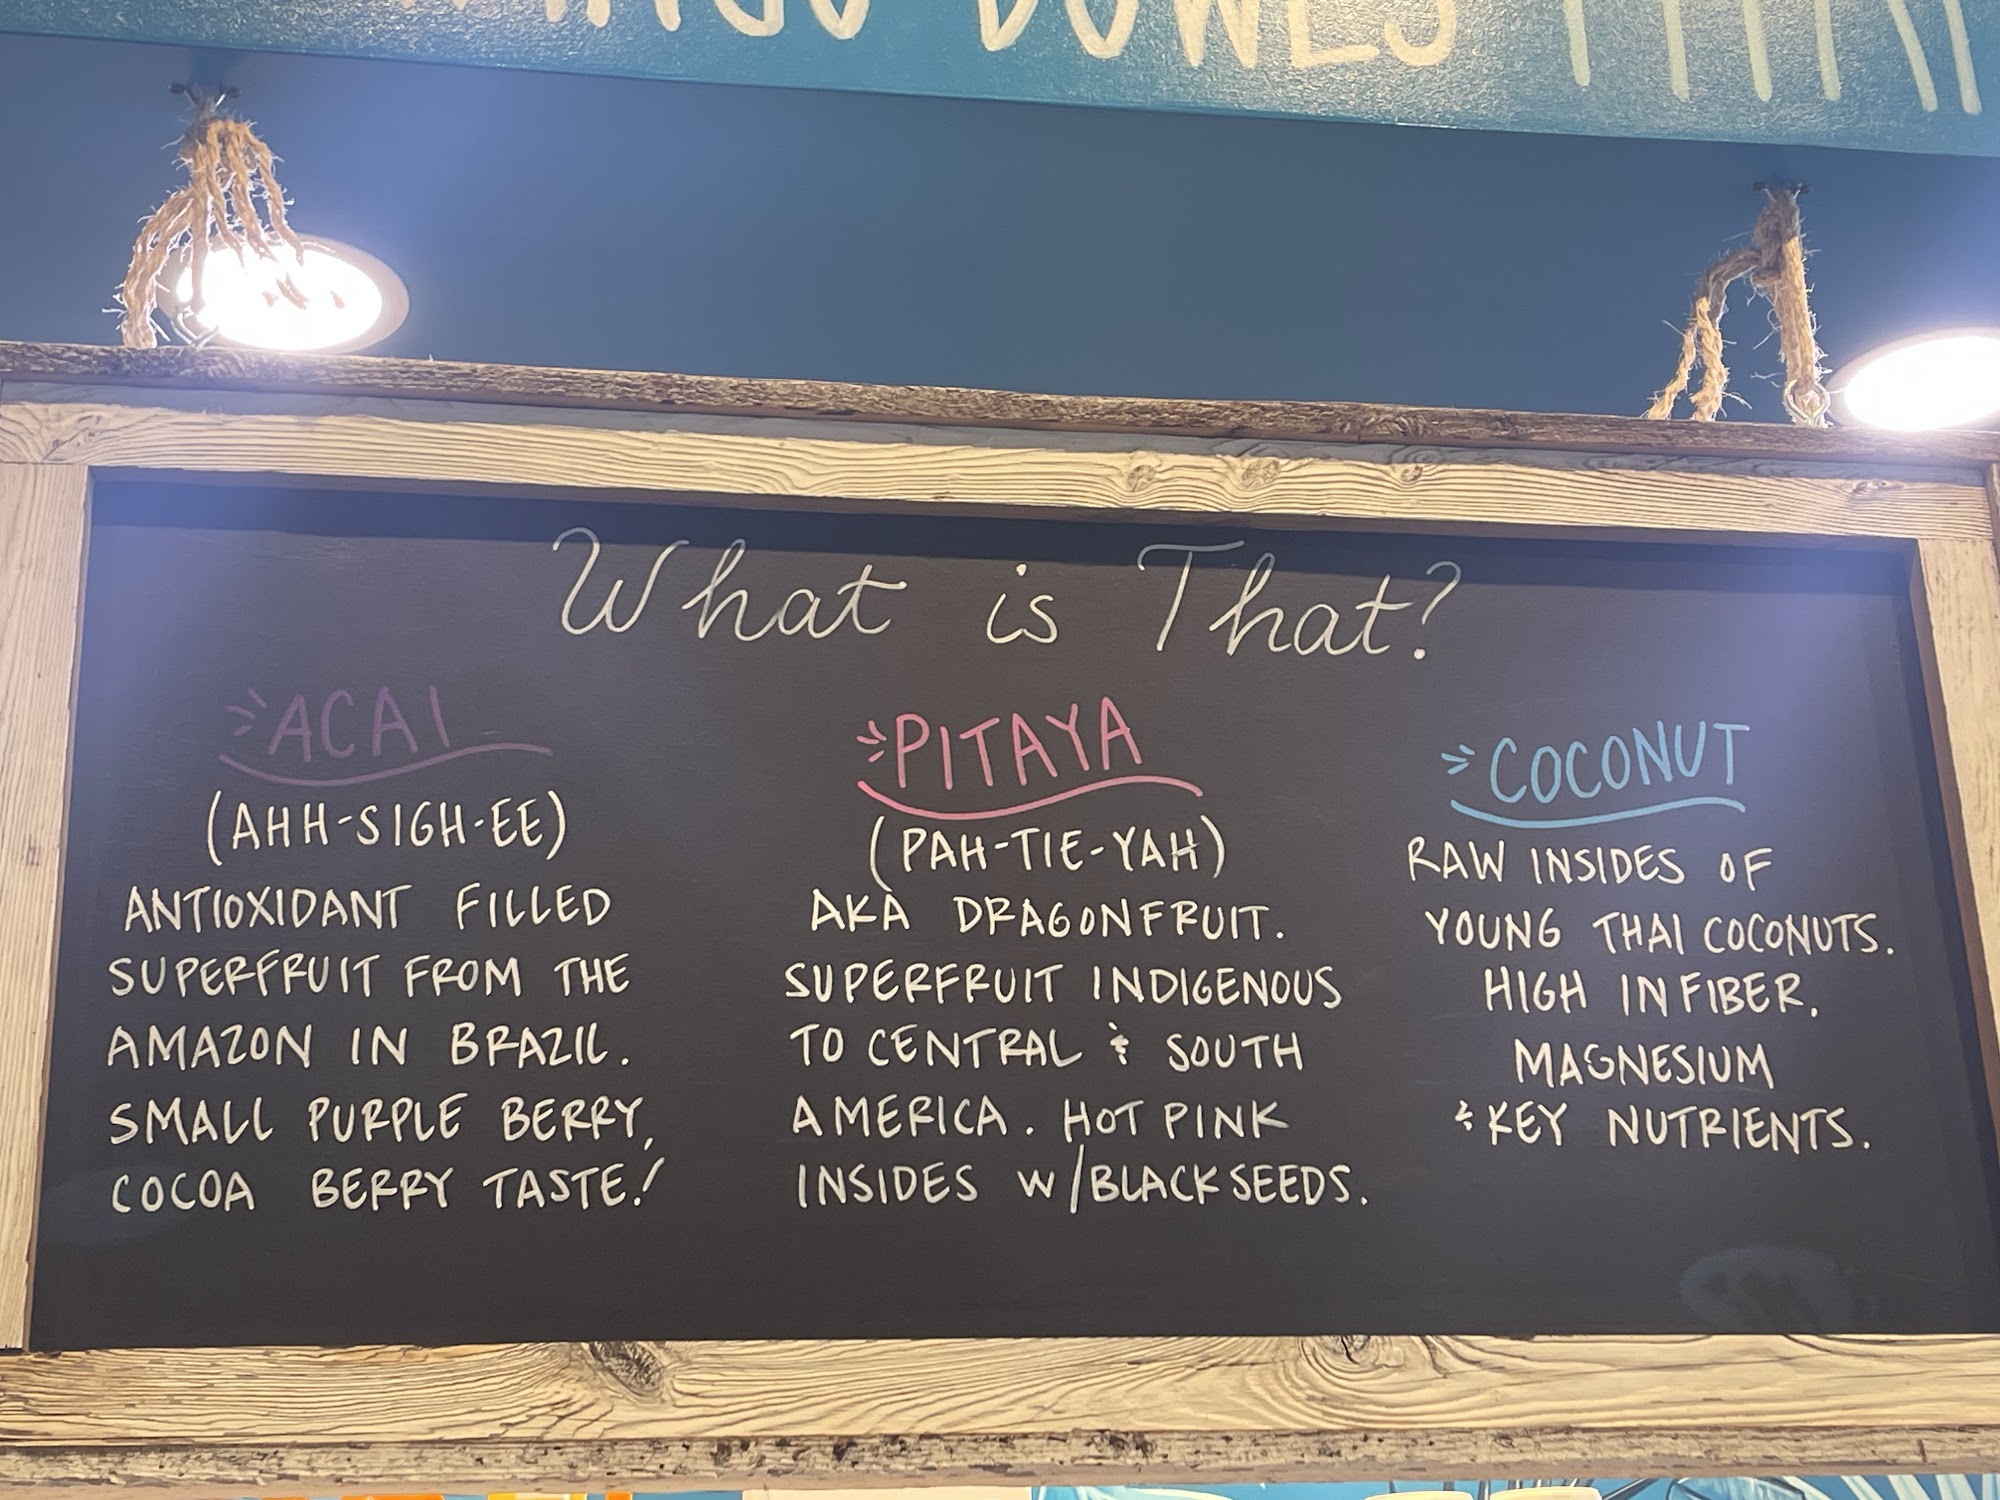 BOWLS
What is That?
ACAI
(AHH-SIGH-EE)
ANTIOXIDANT FILLED
SUPERFRUIT FROM THE
AMAZON IN BRAZIL.
SMALL PURPLE BERRY,
COCOA BERRY TASTE!
PITAYA
(PAH-TIE-YAH)
AKA DRAGONFRUIT.
SUPERFRUIT INDIGENOUS
TO CENTRAL & SOUTH
AMERICA. HOT PINK
INSIDES W/BLACK SEEDS.
COCONUT
RAW INSIDES OF
YOUNG THAI COCONUTS.
HIGH IN FIBER.
MAGNESIUM
& KEY NUTRIENTS.